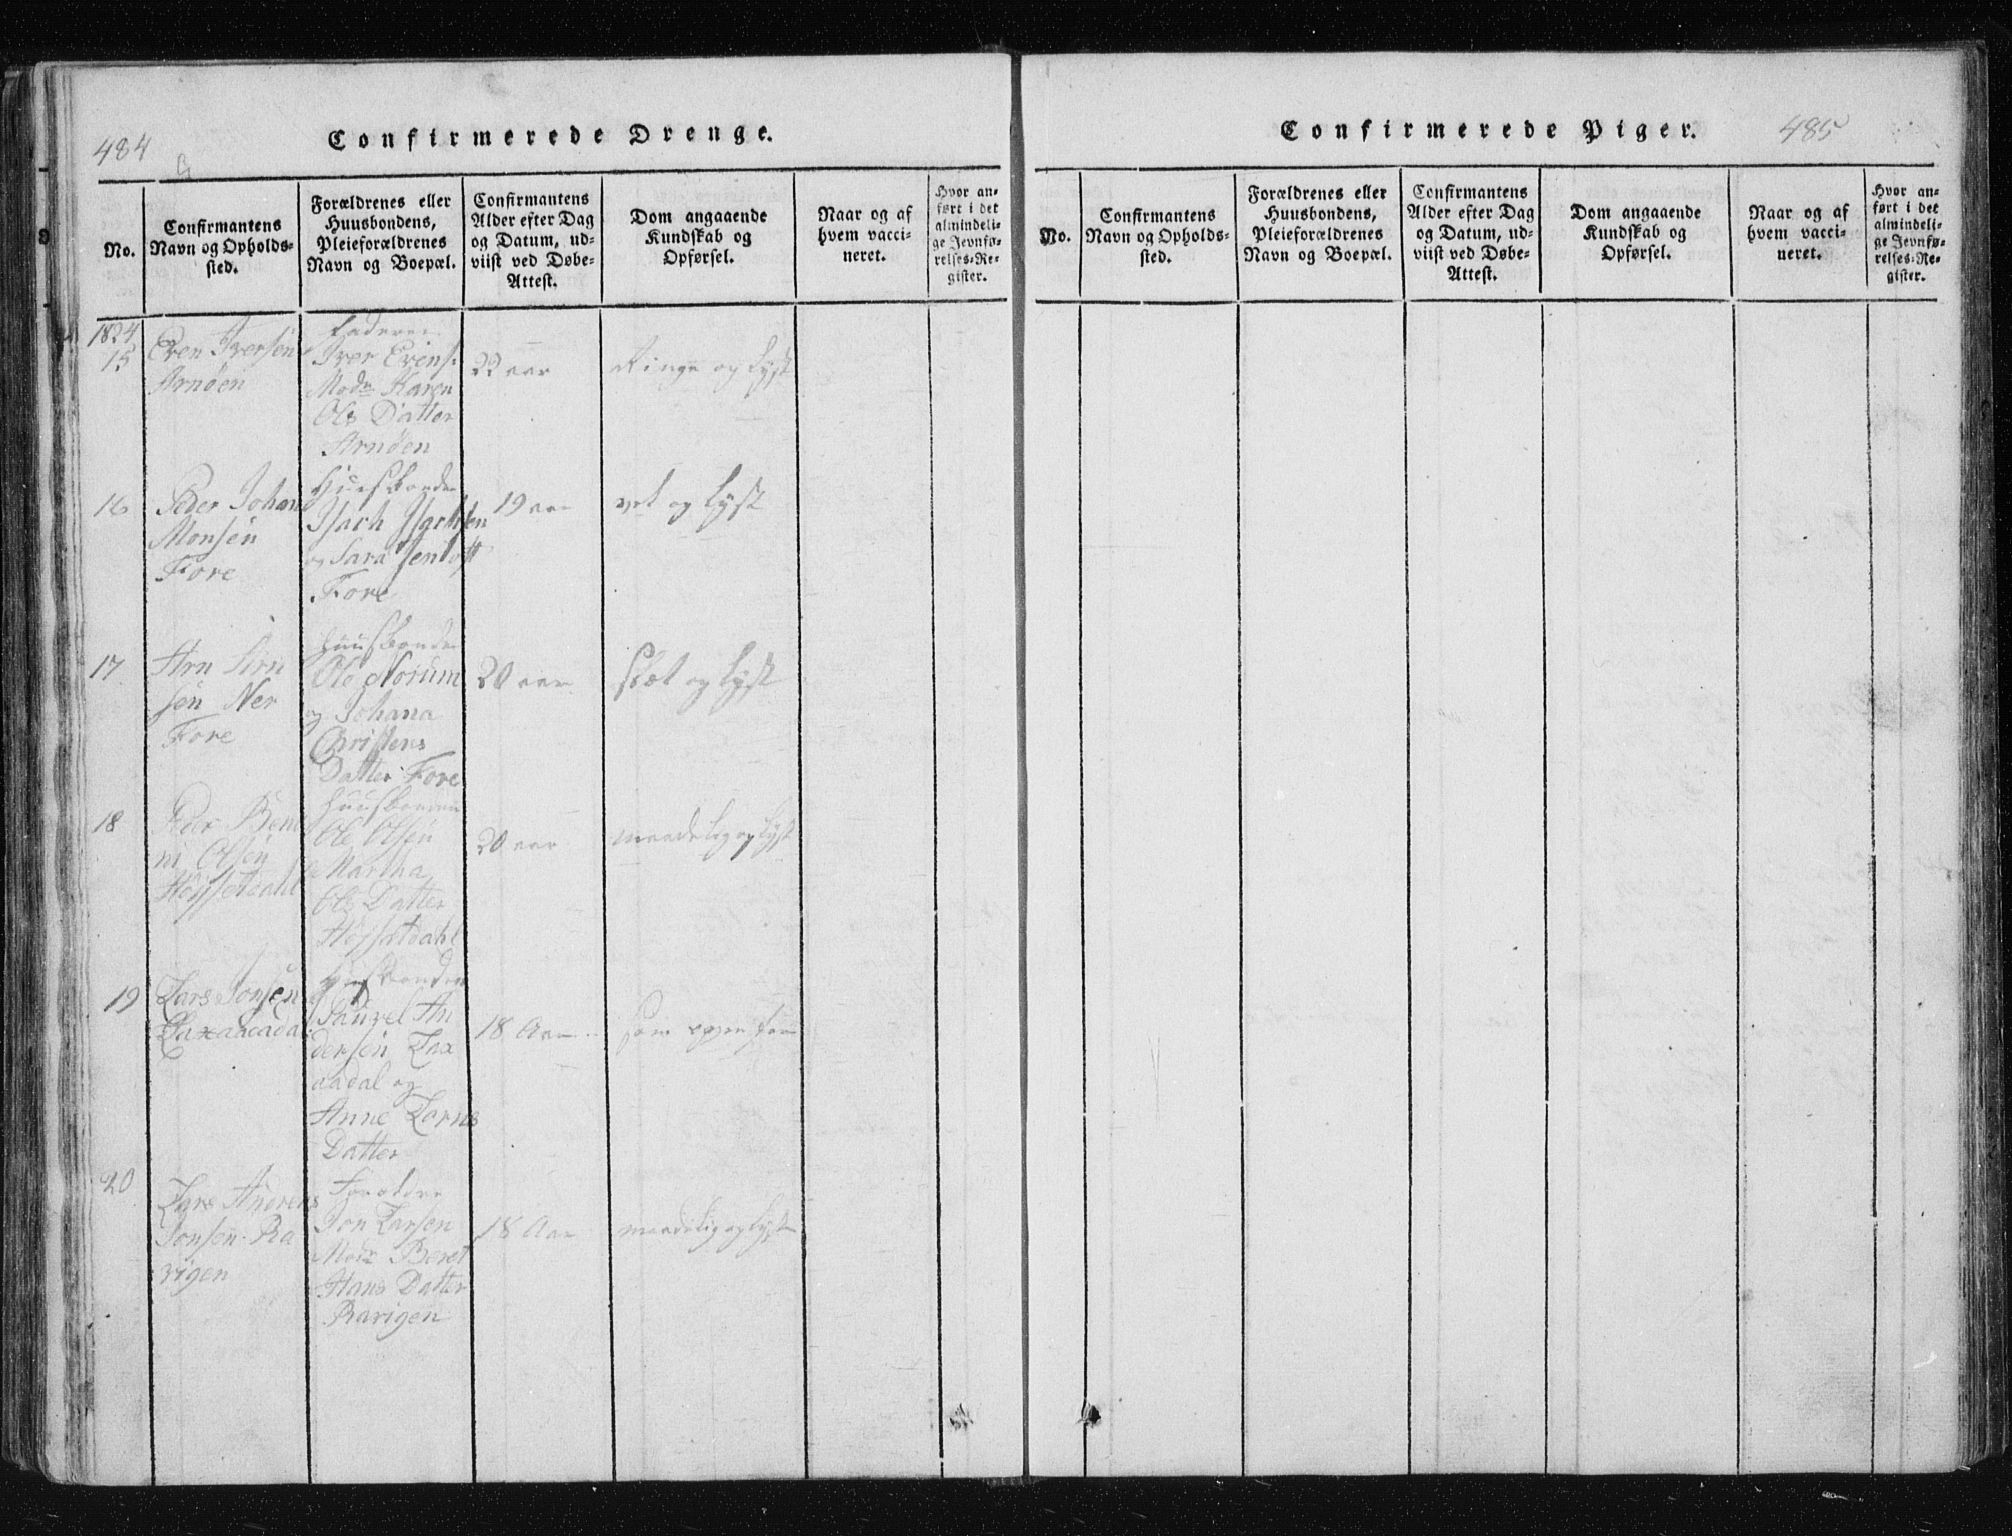 484
Confirmerede Drenge.
No.
Confirmantens
Navn og Opholds-
sted.
Forældrenes eller
Huusbondens,
Pleieforældrenes
Navn og Boepæl.
Confirmantens
Alder efter Dag
og Datum, ud-
viist ved Døbe-
Attest.
Dom angaaende
Kundskab og
Opførsel.
Naar og af
hvem vacci-
neret.
Hvor an-
ført i det
almindeli-
ge Jevnfø-
relses-Re-
gister.
1824
15
Even Iversen
Arnöen
Faderen
Iver Evens.
Modr Karen
Ols Datter
Arnöen
22 aar
Ringe og Lyst
16
Peder Johan
Monsen
Fore
Huusbonden
Isach Isachsen
og Sara
Fore
19 aar
vel og Lyst
17
Arn Arn
sen Ner
Fore
Huusbonden
Ole Norum
og Johana
Christens
Datter Fore
20 aar
slet og Lyst
18
Peder Bent
ni Olsen
Höysetdahl
Huusbonden
Ole Olsen
Martha
Ols Datter
Höysetdahl
20 aar
maadelig og Lyst
19
Lars Jonsen
Huusbonden
Paul An
dersen Lax
aadal og
Anne Lorns
Datter
18 Aar
som
20
Lars Andreas
Jonsen Ra
rigen
Jon Larsen
Modr Beret
Hans Datter
Rarigen
18 Aar
maadelig og Lyst
Confirmerede Piger.
485
No.
Confirmantens
Navn og Opholds-
sted.
Forældrenes eller
Huusbondens,
Pleieforældrenes
Navn og Boepæl.
Confirmantens
Alder efter Dag
og Datum, ud-
viist ved Døbe-
Attest.
Dom angaaende
Kundskab og
Opførsel.
Naar og af
hvem vacci-
neret.
Hvor an-
ført i det
almindeli-
ge Jevnfø-
relses-Re-
gister.